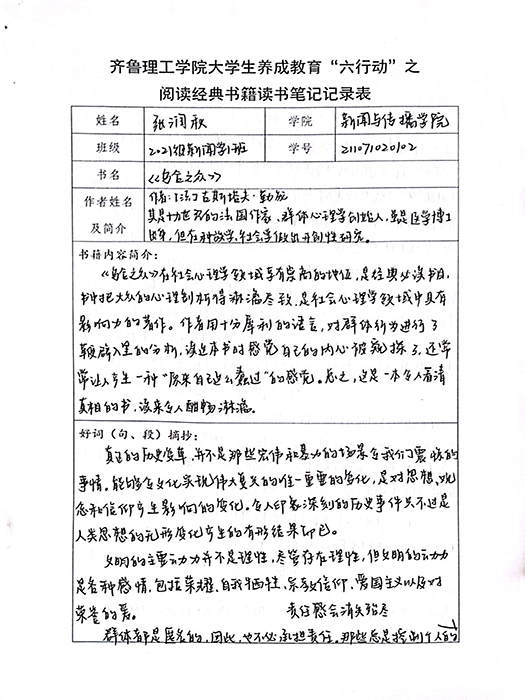 齐鲁理工学院大学生养成教育“六行动”之
阅读经典书籍读书笔记记录表
姓名 张润秋 学院 新闻与传播学院
班级 2021级新闻学1班 学号 211071020102
书名 《乌合之众》
作者姓名及简介 作者:[法]古斯塔夫·勒庞
其是十九世纪的法国作家、群体心理学创始人,虽是医学博士
出身,但在种族学、社会学做出开创性研究。
书籍内容简介:
《乌合之众》在社会心理学领域享有崇高的地位,是经典必读书目,
书中把大众的心理剖析得淋漓尽致,是社会心理学领域中具有
影响力的著作。作者用十分犀利的语言,对群体行为进行了
鞭辟入里的分析,读这本书时感觉自己的内心被窥探了,还常
常让人产生一种“原来自己这么蠢过”的感觉。总之,这是一本令人看清
真相的书,读来令人酣畅淋漓。
好词(句、段)摘抄:
真正的历史变革,并不是那些宏伟和暴力的场景令我们震惊的
事情。能够令文化实现伟大复兴的唯一重要的变化,是对思想、观
念和信仰产生影响的变化。令人印象深刻的历史事件只不过是
人类思想的无形变化产生的有形结果而已。
文明的主要动力并不是理性,尽管存在理性,但文明的动力
是各种感情,包括荣耀、自我牺牲、宗教信仰、爱国主义以及对
荣誉的爱。
责任感会消失殆尽
群体都是匿名的,因此,也不必承担责任。那些总是控制个人的